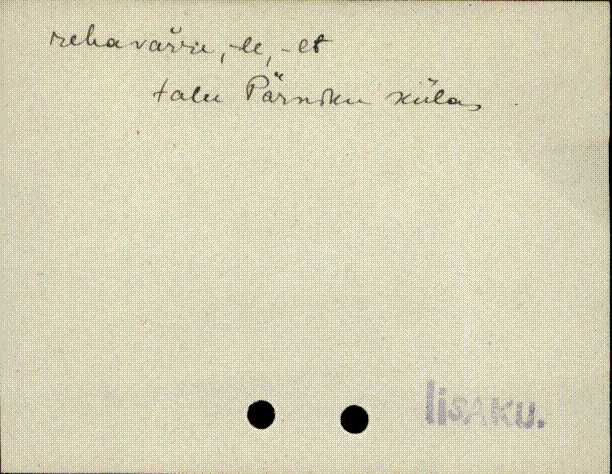 rehavärru, -le, -et
talu Pärniku külas
IisAKU.